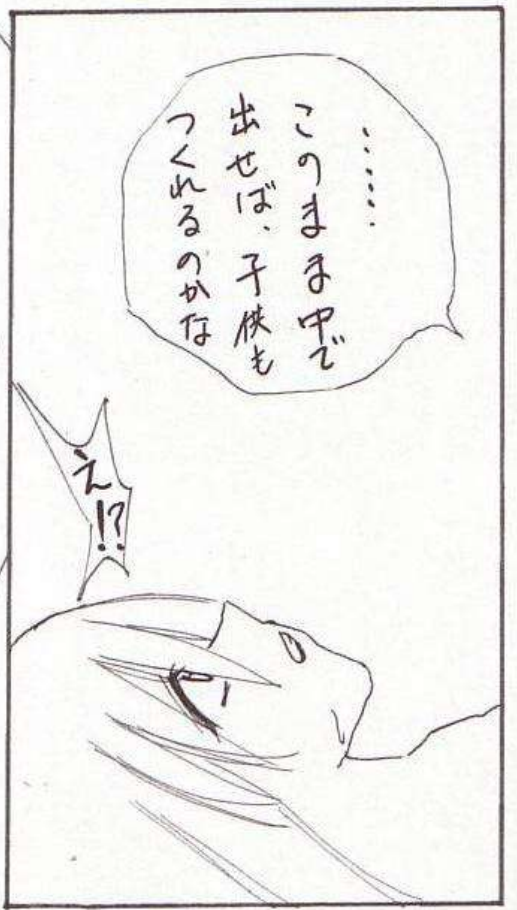 ……
このまま中で
出せば、子供も
つくれるのかな
え!?